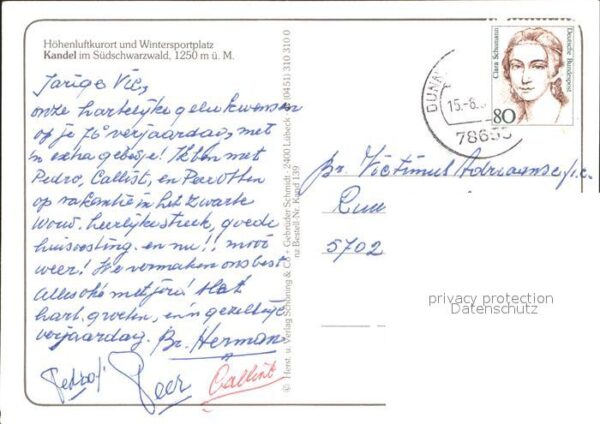 Höhenluftkurort und Wintersportplatz
Kandel im Südschwarzwald, 1250 m ü. M.
Jarige Vic,
onze hartelijke gelukwensen
op je 76e verjaardag, met
'n extra gebedje! Ik ben met
Pedro, Callist, en Peer Otten
op vakantie in het Zwarte
Woud. heerlijke streek, goede
huisvesting en nu!! mooi
weer! We vermaken ons best
Alles oké met jou!
hart. groeten, en 'n gezellige
verjaardag. Br. Herman
Pedro! Peer Callist
© Herst. u. Verlag Schöning & Co + Gebrüder Schmidt · 2400 Lübeck · (0451) 310 310 0
Bestell-Nr. Kand 139
15.-8.
80
Clara Schumann
Deutsche Bundespost
br. Victimus Adriaanse
5702
privacy protection
Datenschutz